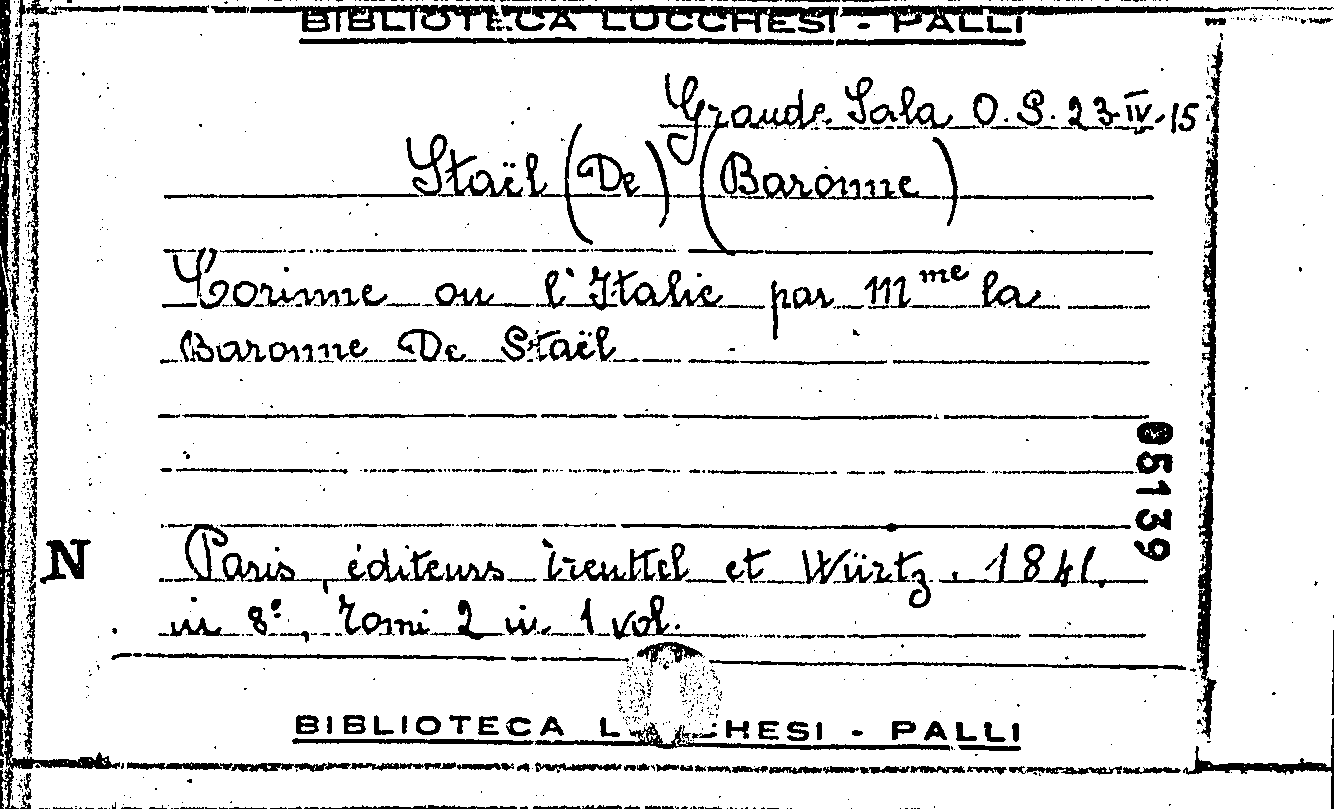 BIBLIOTECA LUCCHESI - PALLI
Grande Sala O. S. 23-IV-15
Staël (De) (Baronne)
Corinne ou l'Italie par Mme la
Baronne De Staël
05139
N
Paris, éditeurs Treuttel et Würtz. 1841.
in 8°, Tomi 2 in 1 vol.
BIBLIOTECA LUCCHESI - PALLI